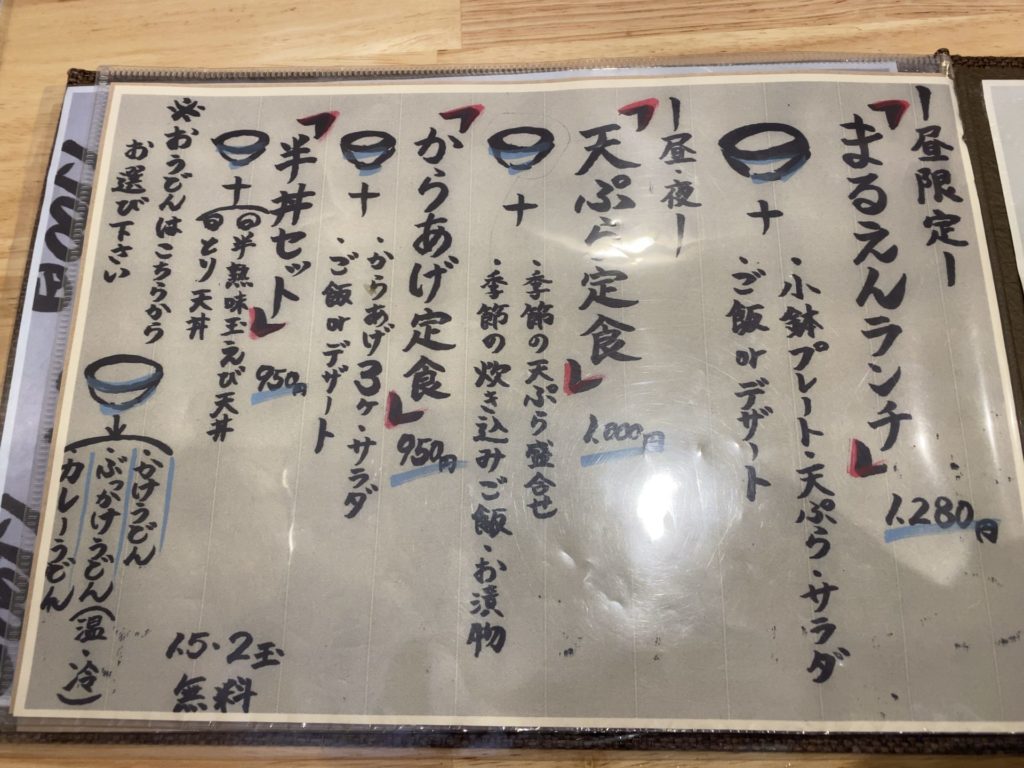 ー昼限定ー
「まるえんランチ」
1.280円
＋
・小鉢プレート・天ぷら・サラダ
・ご飯orデザート
ー昼・夜ー
「天ぷら定食」
1.000円
＋
・季節の天ぷら盛合せ
・季節の炊き込みご飯・お漬物
「からあげ定食」
950円
＋
・からあげ3ヶ・サラダ
・ご飯orデザート
「半丼セット」
950円
＋
半熟味玉えび天丼
とり天丼
※おうどんはこちらから
お選び下さい
・かけうどん
・ぶっかけうどん(温・冷)
カレーうどん
1.5・2玉
無料